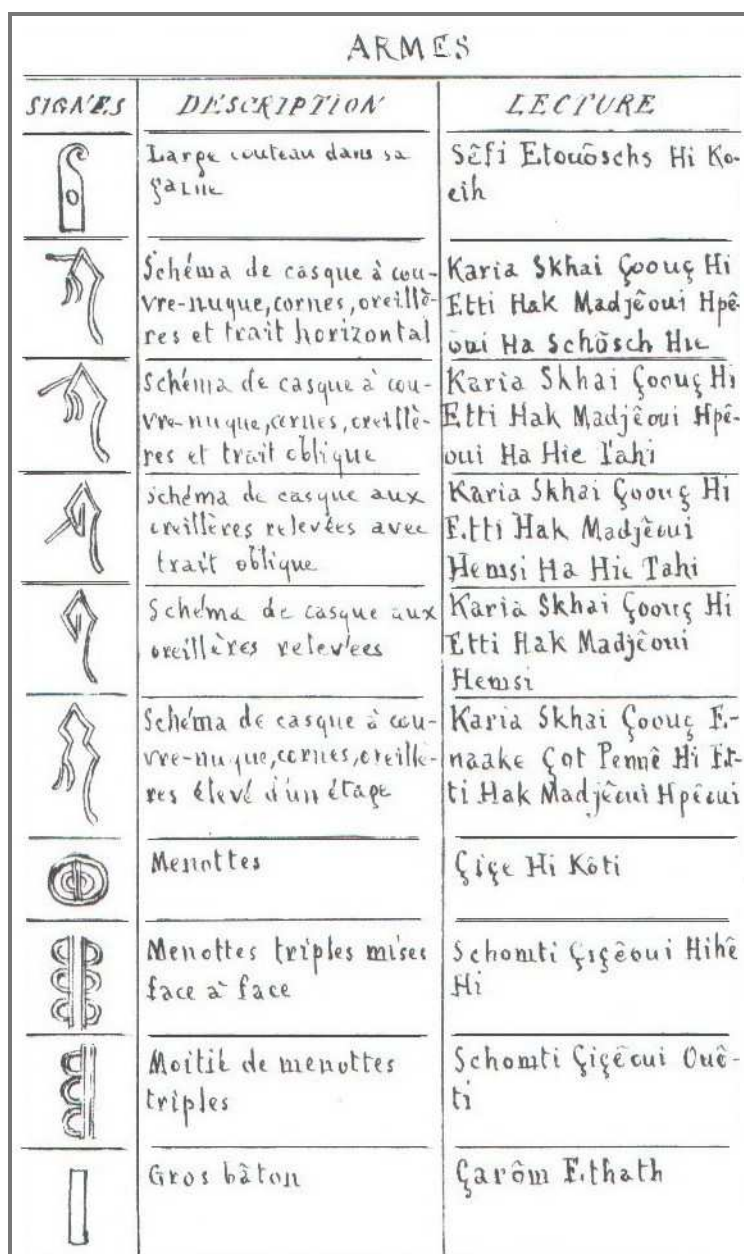 ARMES
SIGNES DESCRIPTION LECTURE
Large couteau dans sa
gaine
Sêfi Etouôschs Hi Ko-
eih
Schéma de casque à cou-
vre-nuque, cornes, oreillè-
res et trait horizontal
Karia Skhai Çoouç Hi
Etti Hak Madjêoui Hpê-
oui Ha Schôsch Hie
Schéma de casque à cou-
vre-nuque, cornes, oreillè-
res et trait oblique
Karia Skhai Çoouç Hi
Etti Hak Madjêoui Hpê-
oui Ha Hie Tahi
Schéma de casque aux
oreillères relevées avec
trait oblique
Karia Skhai Çoouç Hi
Etti Hak Madjêoui
Hemsi Ha Hie Tahi
Schéma de casque aux
oreillères relevées
Karia Skhai Çoouç Hi
Etti Hak Madjêoui
Hemsi
Schéma de casque à cou-
vre-nuque, cornes, oreillè-
res élevé d'un étage
Karia Skhai Çoouç E-
naake Çot Pennê Hi Et-
ti Hak Madjêoui Hpêoui
Menottes
Çiçe Hi Kôti
Menottes triples mises
face à face
Schomti Çiçêoui Hihê
Hi
Moitié de menottes
triples
Schomti Çiçêoui Ouê-
ti
Gros bâton
Çarôm Ethath